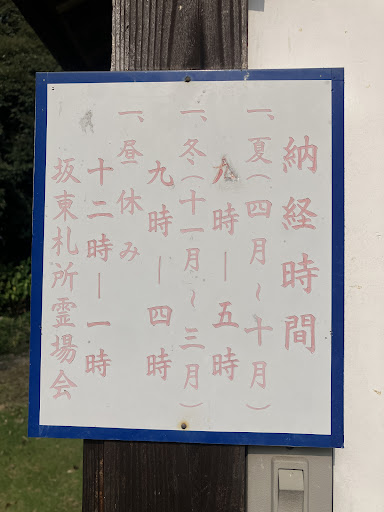 納経時間
一、夏(四月~十月)
八時―五時
一、冬(十一月~三月)
九時―四時
一、昼休み
十二時―一時
坂東札所霊場会